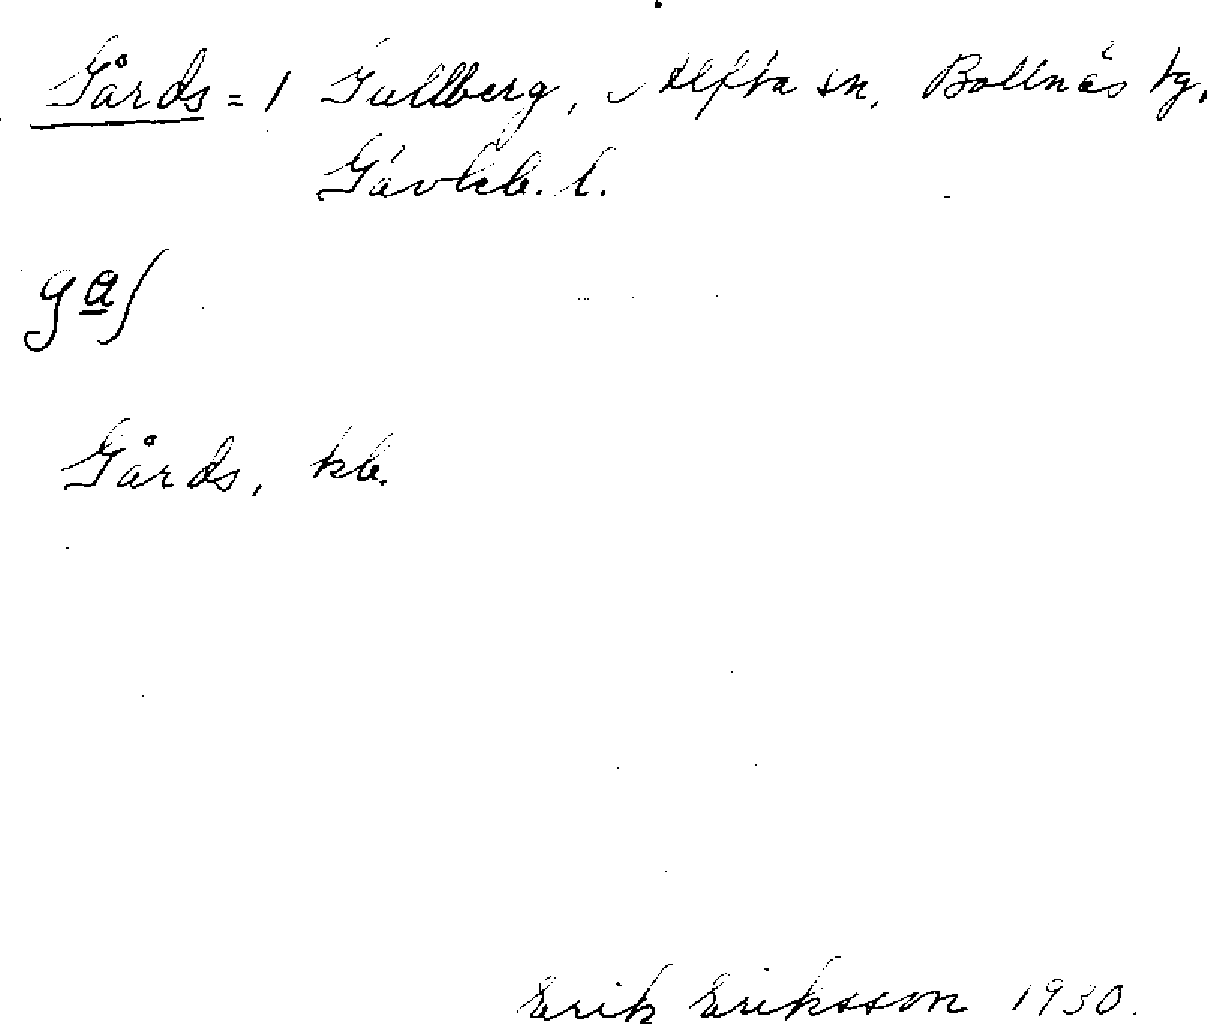 Gårds = 1 Gullberg, Alfta sn, Bollnäs tg,
Gävleb. l.
gaʃ
Gårds, kb.
Erik Eriksson 1930.